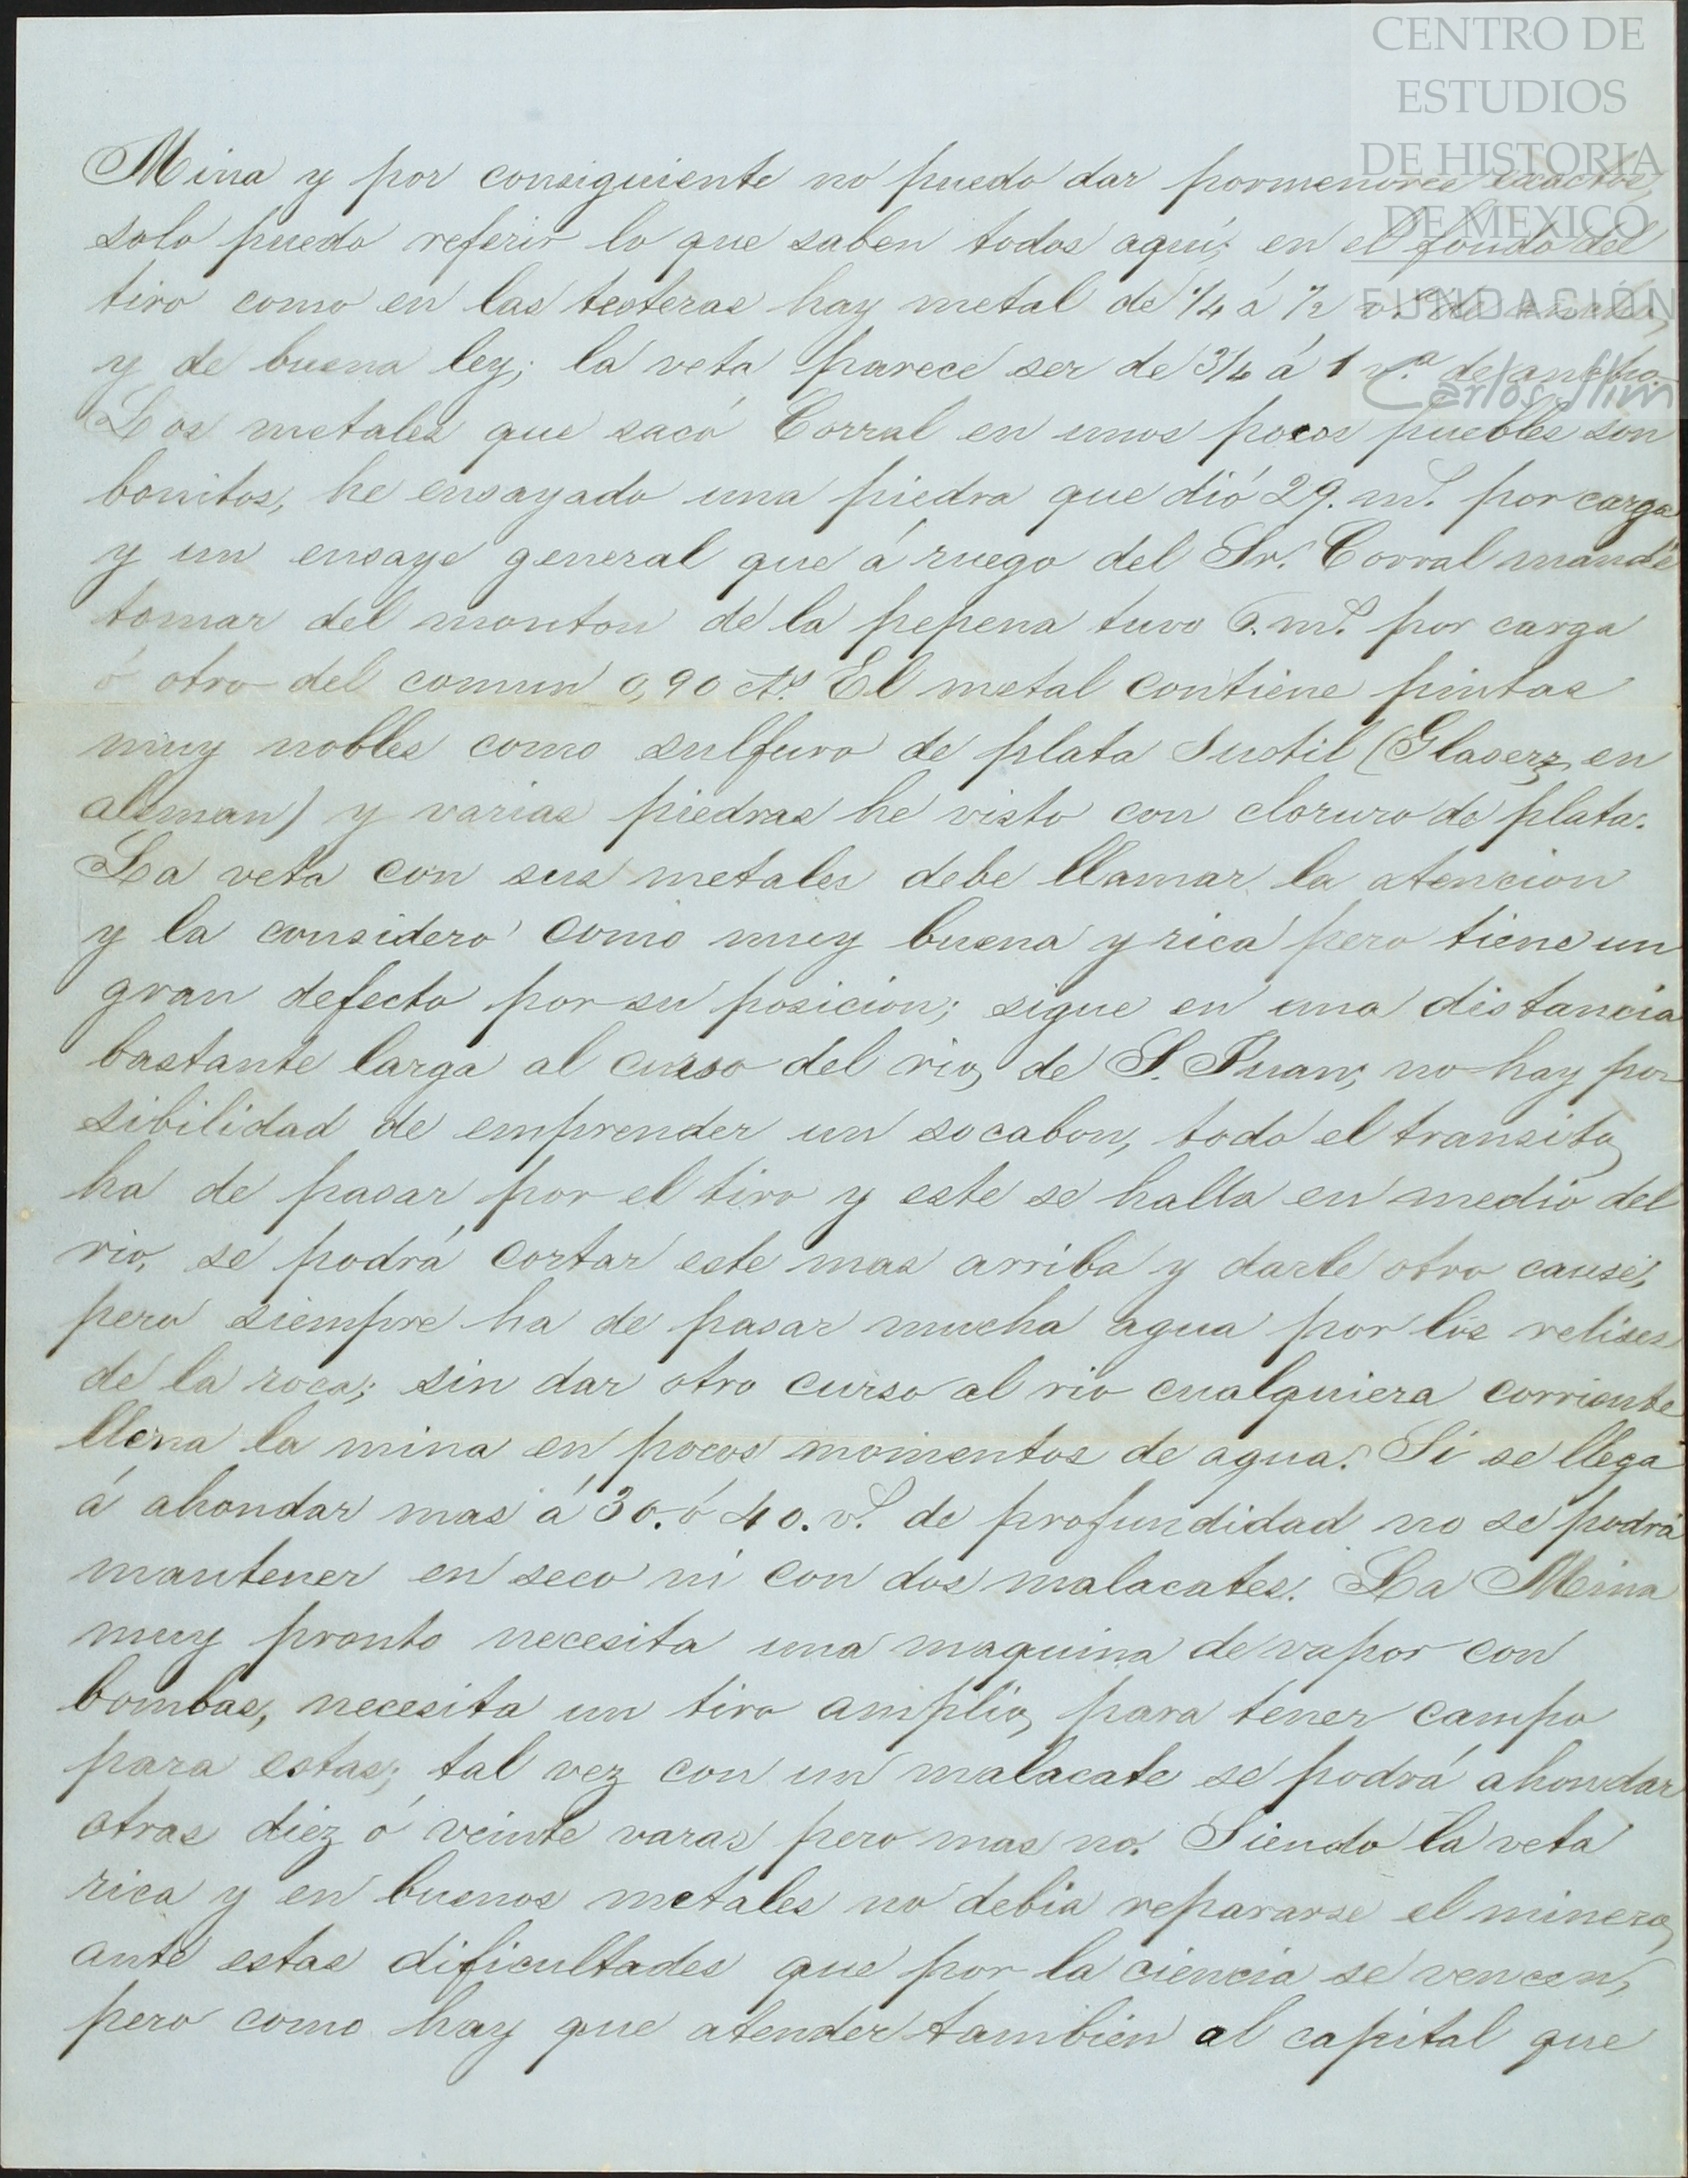 CENTRO DE
ESTUDIOS
DE HISTORIA
DE MEXICO
FUNDACIÓN
Carlos Slim
Mina y por consiguiente no puedo dar pormenores exactos,
solo puedo referir lo que saben todos aquí; en el fondo del
tiro como en las testeras hay metal de 1/4 á 1/2 v.ª de ancho,
y de buena ley; la veta parece ser de 3/4 á 1 v.ª de ancho.
Los metales que sacó Corral en unos pocos puebles son
bonitos, he ensayado una piedra que dió 29. m.s por carga
y un ensaye general que á ruego del Sr. Corral mandé
tomar del monton de la pepena tuvo 6. m.s por carga
ó otro del comun 0,90 M.s El metal contiene pintas
muy nobles como sulfuro de plata Sustil (Glaserz en
aleman) y varias piedras he visto con cloruro de plata.
La veta con sus metales debe llamar la atencion
y la considero como muy buena y rica pero tiene un
gran defecto por su posicion; sigue en una distancia
bastante larga al curso del rio de S. Juan; no hay po-
sibilidad de emprender un socabon, todo el transito
ha de pasar por el tiro y este se halla en medio del
rio, se podrá cortar este mas arriba y darle otro cause,
pero siempre ha de pasar mucha agua por los relises
de la roca; sin dar otro curso al rio cualquiera corriente
llena la mina en pocos momentos de agua. Si se llega
á ahondar mas á 30. ó 40. v.s de profundidad no se podrá
mantener en seco ni con dos malacates. La Mina
muy pronto necesita una maquina de vapor con
bombas, necesita un tiro amplio para tener campo
para estas; tal vez con un malacate se podrá ahondar
otras diez ó veinte varas pero mas no. Siendo la veta
rica y en buenos metales no debia repararse el minero
ante estas dificultades que por la ciencia se vencen,
pero como hay que atender tambien al capital que